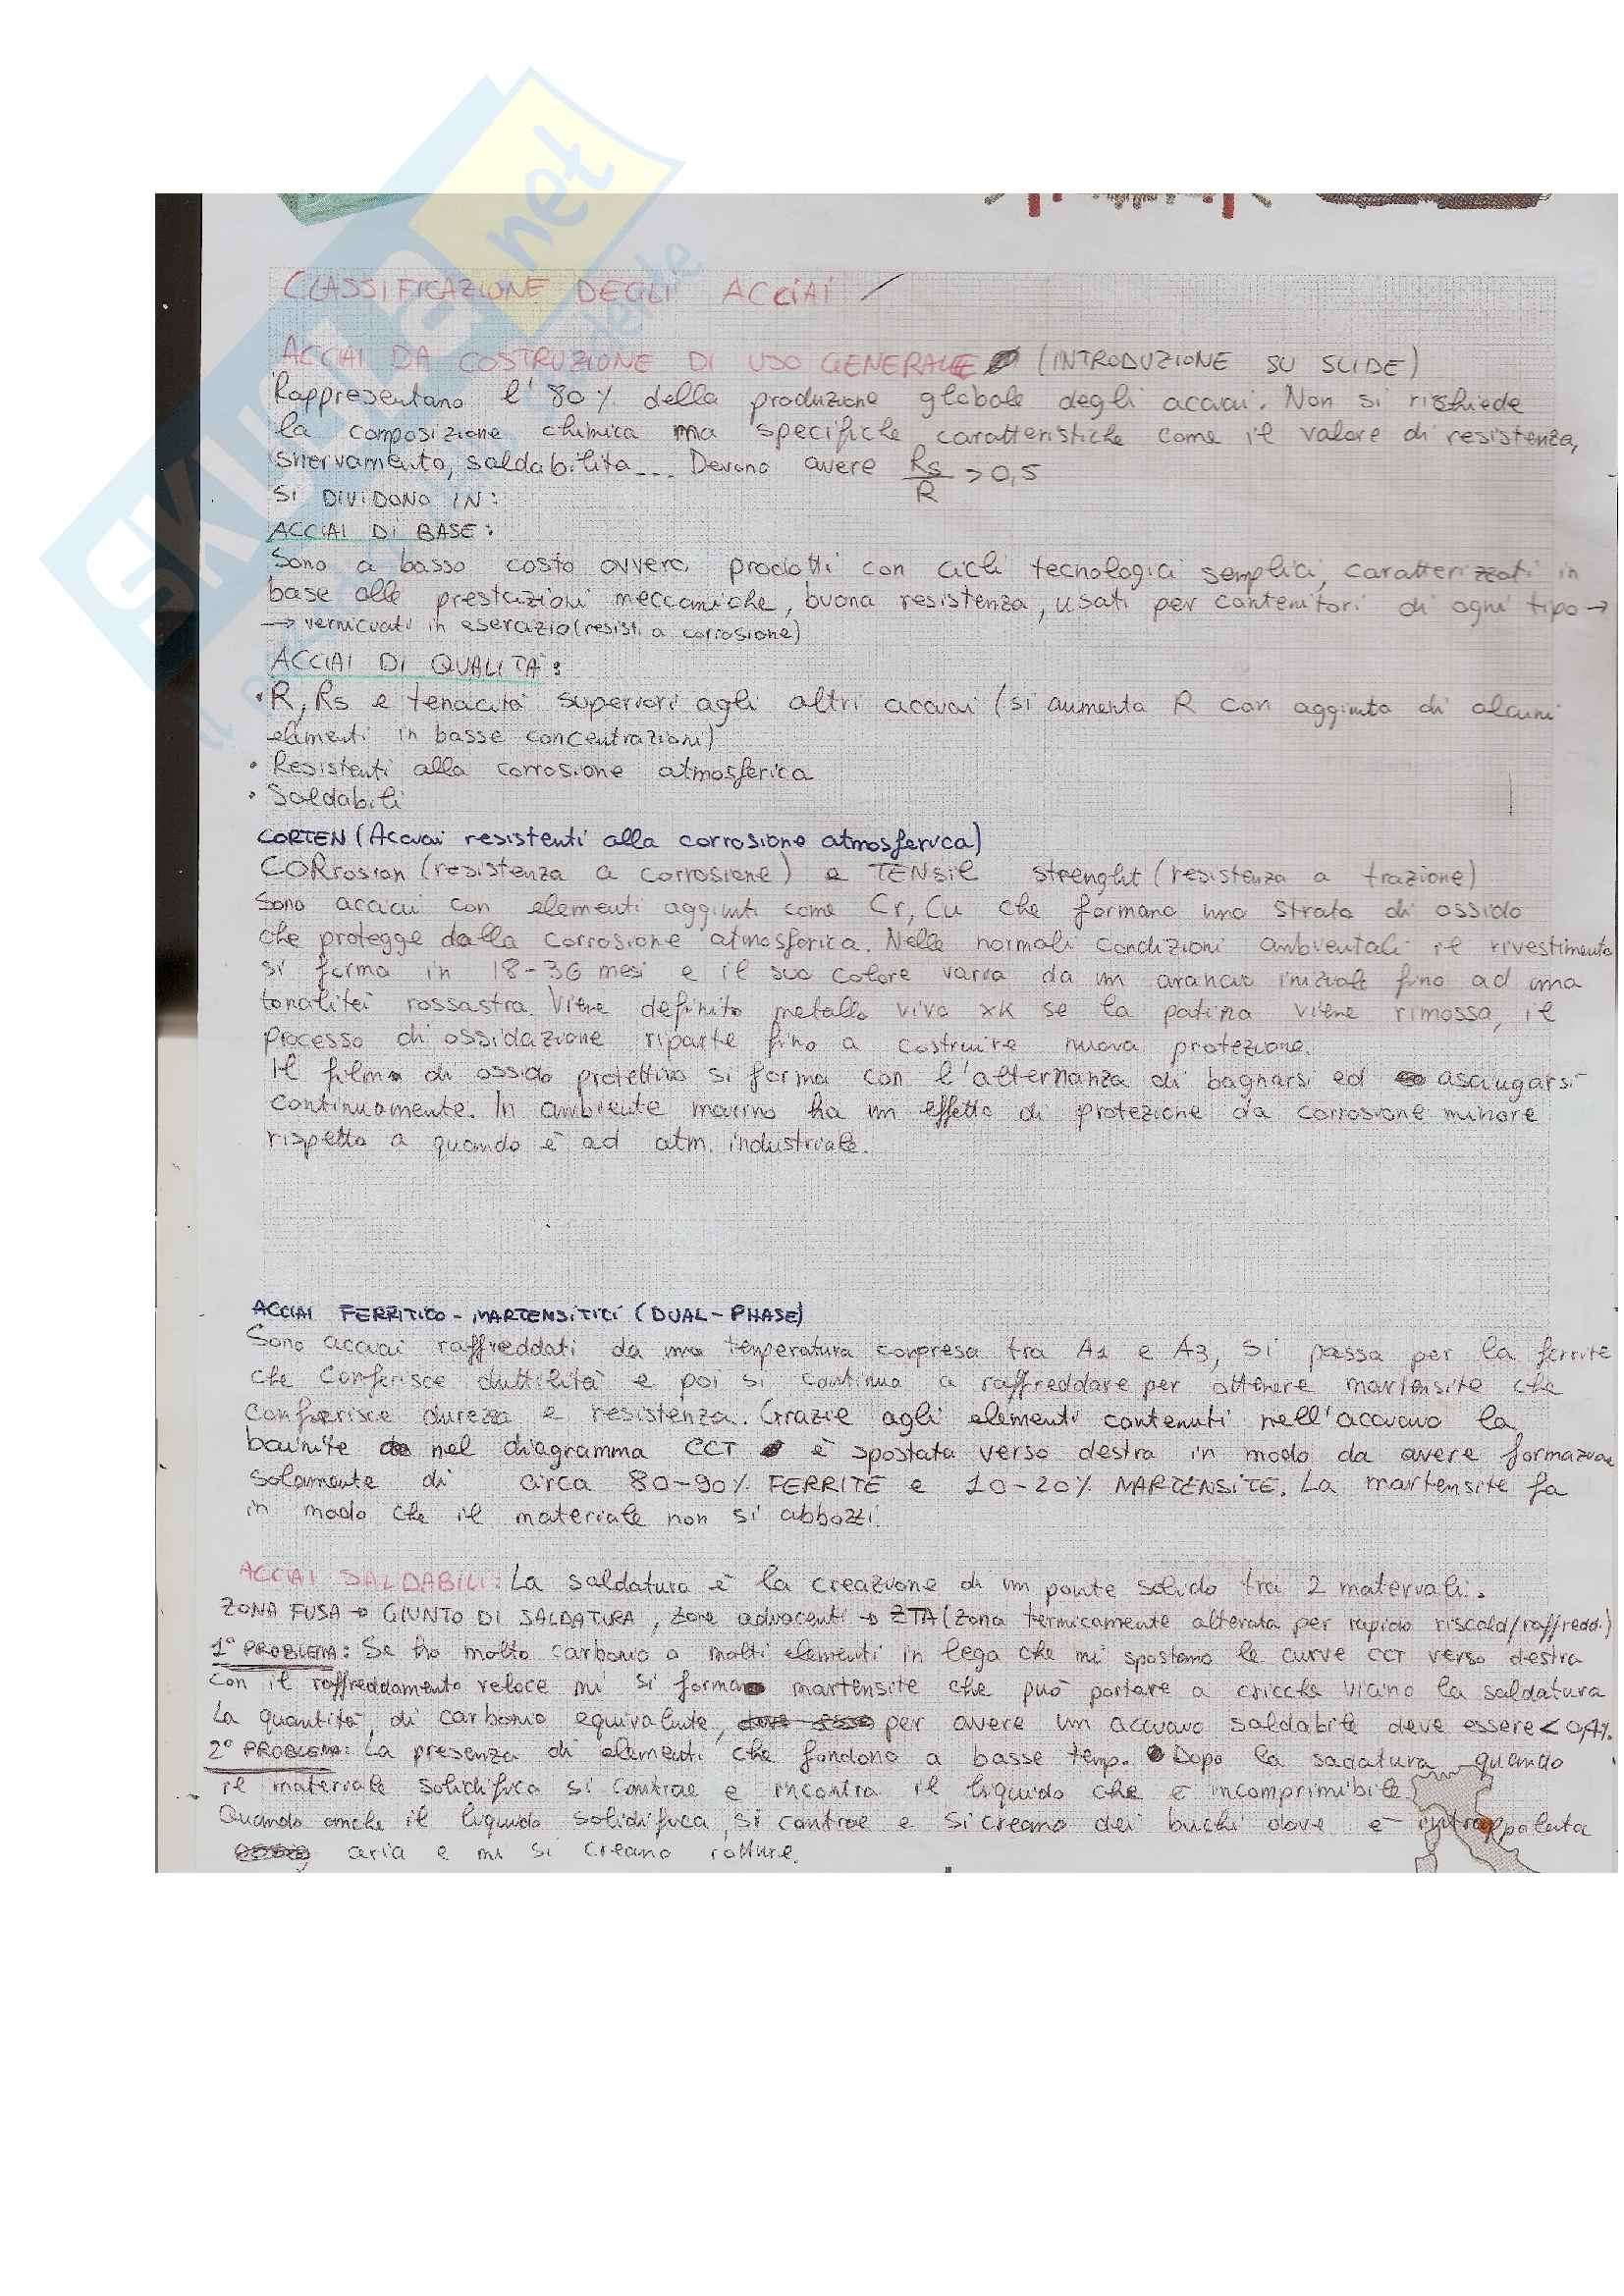 CLASSIFICAZIONE DEGLI ACCIAI
ACCIAI DA COSTRUZIONE DI USO GENERALE (INTRODUZIONE SU SLIDE)
Rappresentano l'80% della produzione globale degli acciai. Non si richiede
la composizione chimica ma specifiche caratteristiche come il valore di resistenza,
snervamento, saldabilità... Devono avere Rs/R > 0,5
SI DIVIDONO IN:
ACCIAI DI BASE:
Sono a basso costo ovvero prodotti con cicli tecnologici semplici, caratterizzati in
base alle prestazioni meccaniche, buona resistenza, usati per contenitori di ogni tipo →
→ verniciati in esercizio (resist. a corrosione)
ACCIAI DI QUALITA':
• R, Rs e tenacità superiori agli altri acciai (si aumenta R con aggiunta di alcuni
elementi in basse concentrazioni)
• Resistenti alla corrosione atmosferica
• Saldabili
CORTEN (Acciai resistenti alla corrosione atmosferica)
CORrosion (resistenza a corrosione) e TENsil strenght (resistenza a trazione)
Sono acciai con elementi aggiunti come Cr, Cu che formano uno strato di ossido
che protegge dalla corrosione atmosferica. Nelle normali condizioni ambientali il rivestimento
si forma in 18-36 mesi e il suo colore varia da un arancio iniziale fino ad una
tonalità rossastra. Viene definito metallo vivo xk se la patina viene rimossa, il
processo di ossidazione riparte fino a costruire nuova protezione.
Il film di ossido protettivo si forma con l'alternanza di bagnarsi ed asciugarsi
continuamente. In ambiente marino ha un effetto di protezione da corrosione minore
rispetto a quando è ad atm. industriale.
ACCIAI FERRITICO-MARTENSITICI (DUAL-PHASE)
Sono acciai raffreddati da una temperatura compresa tra A1 e A3, si passa per la ferrite
che conferisce duttilità e poi si continua a raffreddare per ottenere martensite che
conferisce durezza e resistenza. Grazie agli elementi contenuti nell'acciaio la
bainite nel diagramma CCT è spostata verso destra in modo da avere formazione
solamente di circa 80-90% FERRITE e 10-20% MARTENSITE. La martensite fa
in modo che il materiale non si abbozzi.
ACCIAI SALDABILI: La saldatura è la creazione di un ponte solido tra 2 materiali.
ZONA FUSA → GIUNTO DI SALDATURA, zone adiacenti → ZTA (zona termicamente alterata per rapido riscald/raffredd.)
1° PROBLEMA: Se ho molto carbonio o molti elementi in lega che mi spostano le curve CCT verso destra
con il raffreddamento veloce mi si forma martensite che può portare a cricche vicino la saldatura
La quantità di carbonio equivalente, per avere un acciaio saldabile deve essere < 0,4%.
2° PROBLEMA: La presenza di elementi che fondono a basse temp. Dopo la sadatura quando
il materiale solidifica si contrae e incontra il liquido che è incomprimibile.
Quando anche il liquido solidifica, si contrae e si creano dei buchi dove è intrappolata
aria e mi si creano rotture.
SKUOLA.net